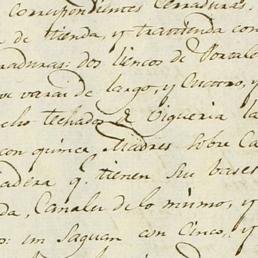 correspondientes Cerraduras.
de tienda, y trastienda con
raduras: dos liencos de Portale
ve varas de largo, y Cuatro, y
cho techados de Vigueria la
con quince Madres sobre Ca
adera q. tienen sus bases
da, Canales de lo mismo, y
o: un Saguan con Cinco, y